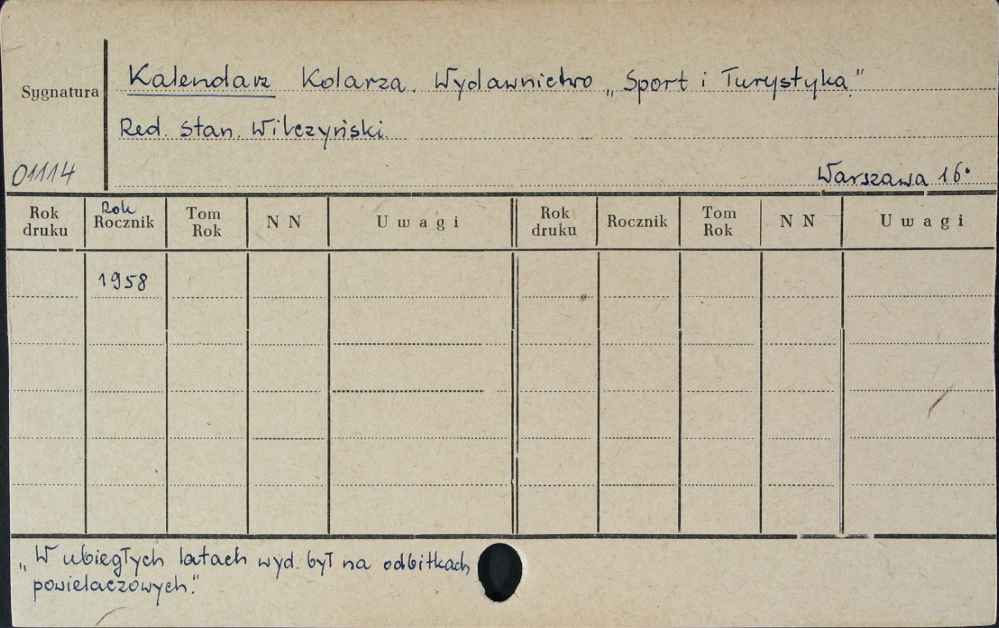 Kalendarz Kolarza. Wydawnictwo „Sport i Turystyka"
Sygnatura
Red. Stan. Wilczyński.
01114
Warszawa 16°
Rok druku Rok Rocznik Tom Rok N N Uwagi Rok druku Rocznik Tom Rok N N Uwagi
1958
„W ubiegłych latach wyd. był na odbitkach
powielaczowych."